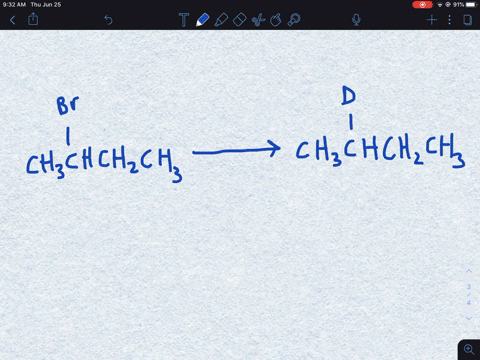 9:32 AM Thu Jun 25
91%
T
Br
D
CH₃CHCH₂CH₃
CH₃CHCH₂CH₃
3
4